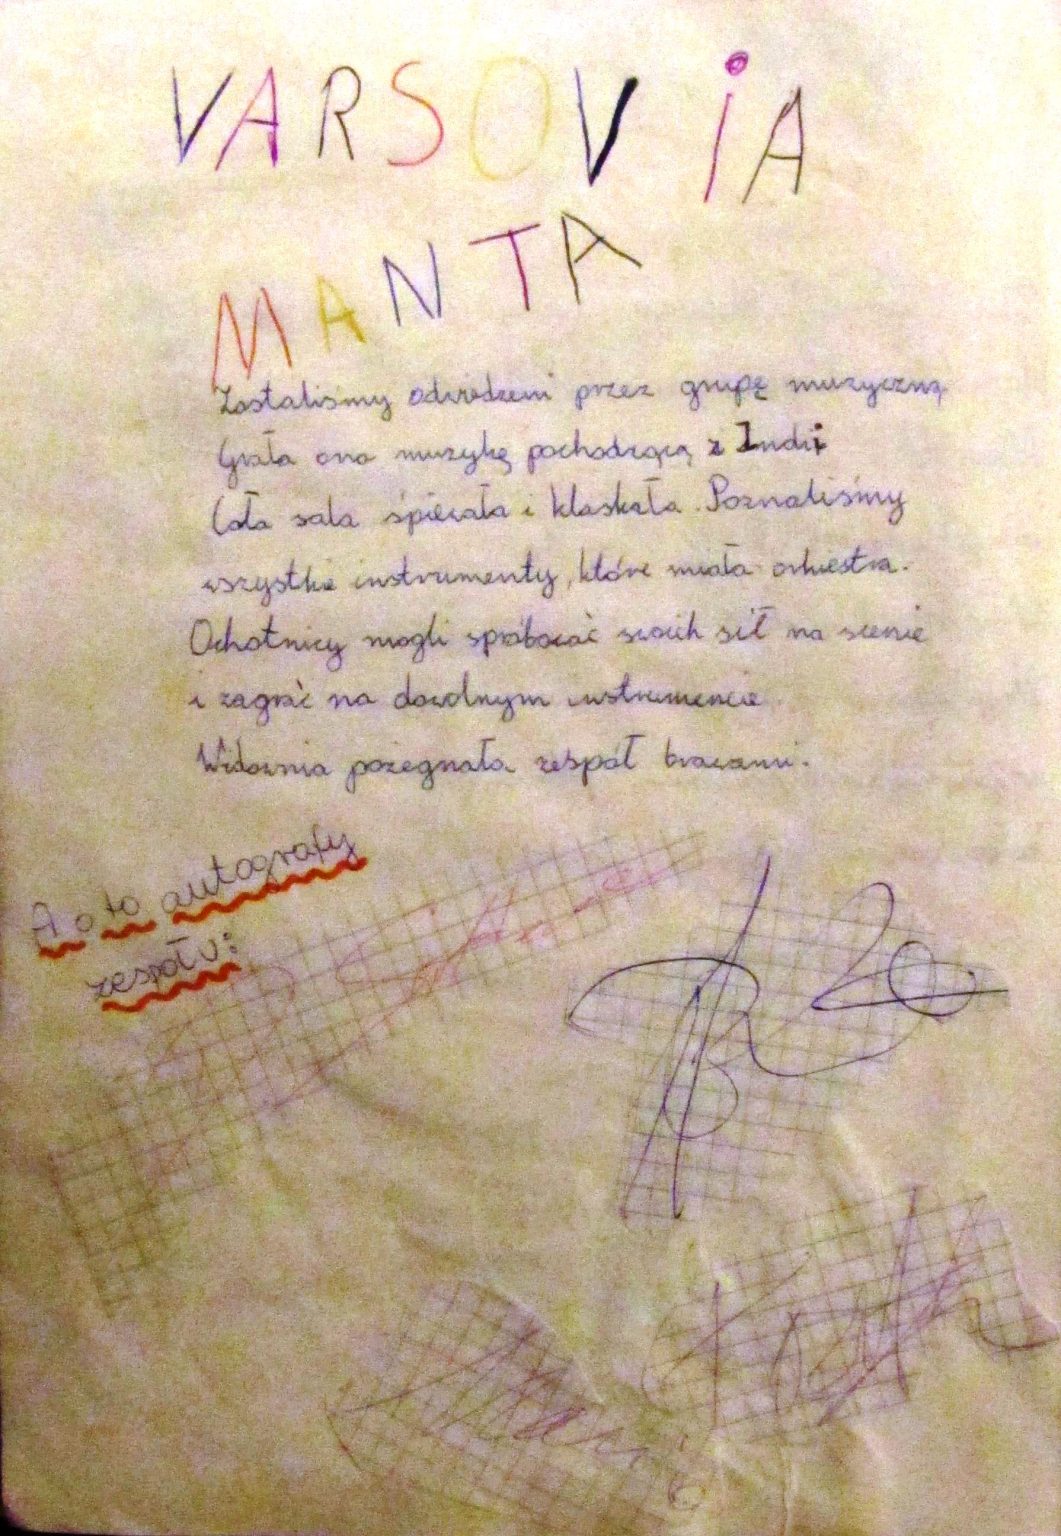 VARSOVIA
MANTA
Zostaliśmy odwiedzeni przez grupę muzyczną
Grała ona muzykę pochodzącą z Indii
Cała sala śpiewała i klaskała. Poznaliśmy
wszystkie instrumenty, które miała orkiestra.
Ochotnicy mogli spróbować swoich sił na scenie
i zagrać na dowolnym instrumencie
Widownia pożegnała zespół brawami.
A oto autografy
zespołu: